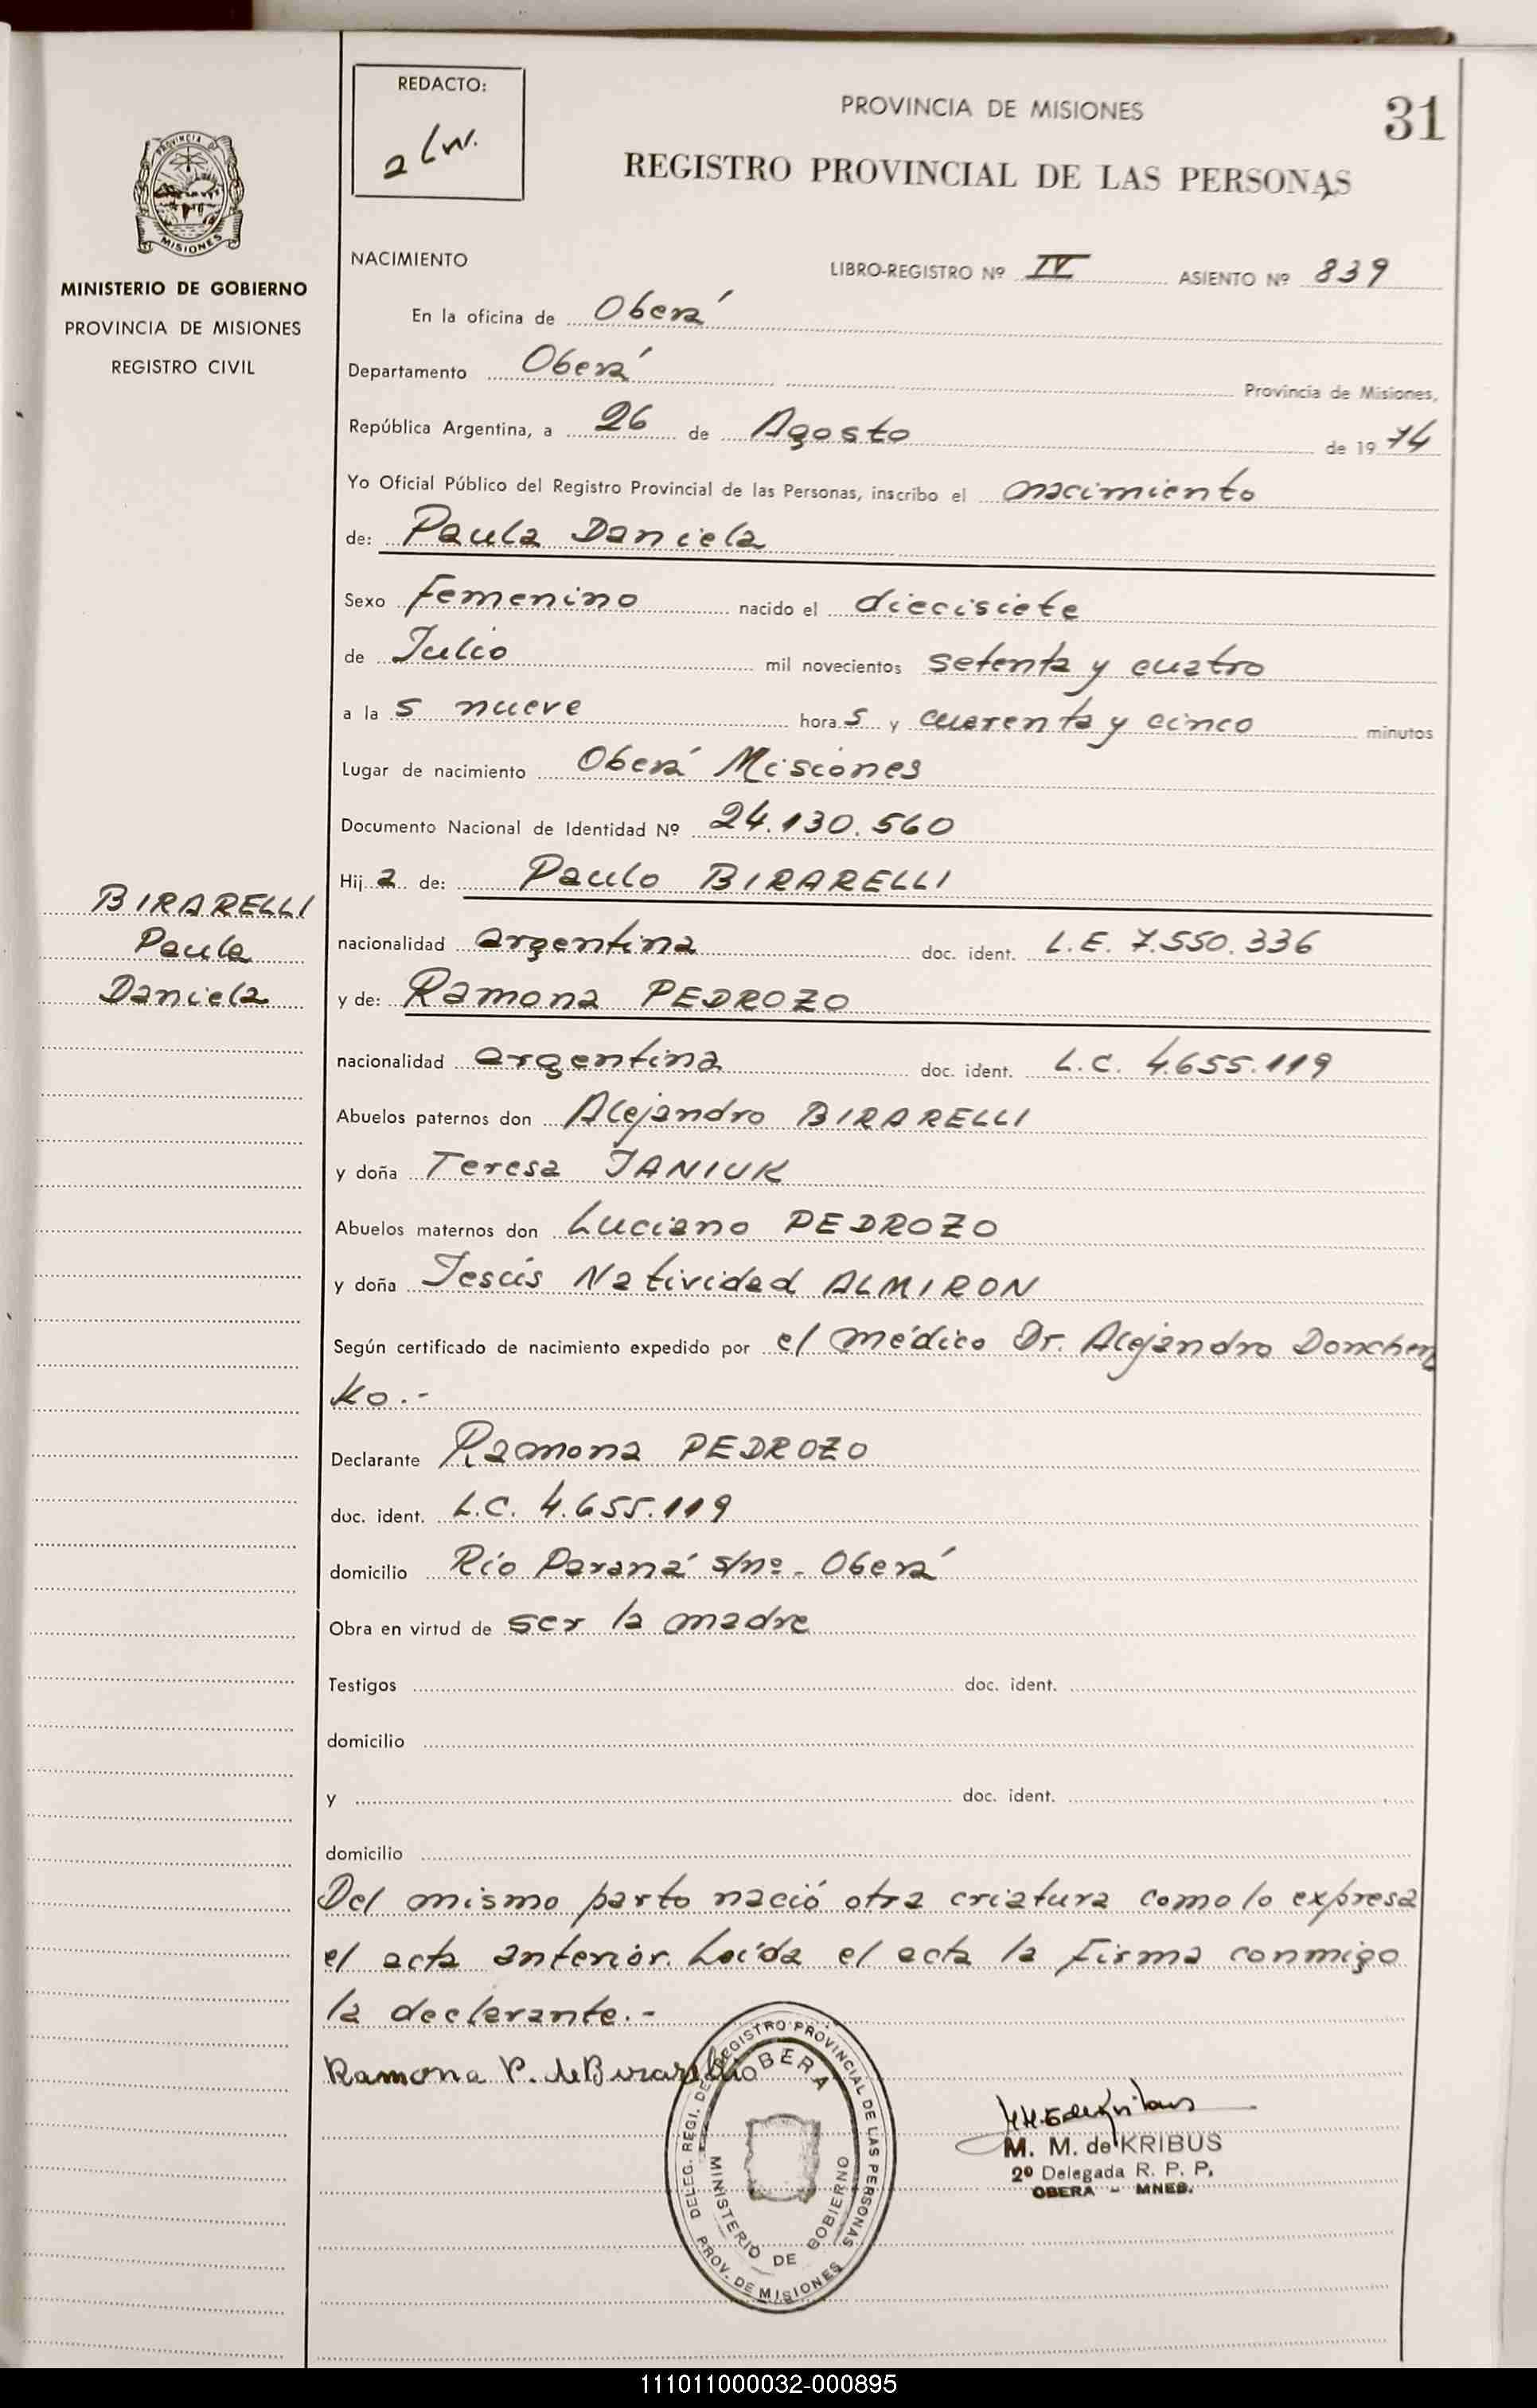 REDACTO:
PROVINCIA DE MISIONES
31
REGISTRO PROVINCIAL DE LAS PERSONAS
PROVINCIA DE
MISIONES
MINISTERIO DE GOBIERNO
PROVINCIA DE MISIONES
REGISTRO CIVIL
NACIMIENTO
LIBRO-REGISTRO Nº IV ASIENTO Nº 839
En la oficina de Oberá
Departamento Oberá Provincia de Misiones,
República Argentina, a 26 de Agosto de 1974
Yo Oficial Público del Registro Provincial de las Personas, inscribo el nacimiento
de: Paula Daniela
Sexo Femenino nacido el diecisiete
de Julio mil novecientos setenta y cuatro
a la s nueve hora s y cuarenta y cinco minutos
Lugar de nacimiento Oberá Misiones
Documento Nacional de Identidad Nº 24.130.560
Hij a de: Paulo BIRARELLI
BIRARELLI
Paula
Daniela
nacionalidad argentina doc. ident. L.E. 7.550.336
y de: Ramona PEDROZO
nacionalidad argentina doc. ident. L.C. 4.655.119
Abuelos paternos don Alejandro BIRARELLI
y doña Teresa JANIUK
Abuelos maternos don Luciano PEDROZO
y doña Jesús Natividad ALMIRON
Según certificado de nacimiento expedido por el médico Dr. Alejandro Donchen
ko.-
Declarante Ramona PEDROZO
doc. ident. L.C. 4.655.119
domicilio Río Paraná s/nº - Oberá
Obra en virtud de ser la madre
Testigos doc. ident.
domicilio
y doc. ident.
domicilio
Del mismo parto nació otra criatura como lo expresa
el acta anterior. Leída el acta la firma conmigo
la declarante.-
Ramona P. de Birarelli
DELEG. REGI. DEL REGISTRO PROVINCIAL DE LAS PERSONAS
OBERA
MINISTERIO DE GOBIERNO
PROV. DE MISIONES
M. M. de KRIBUS
2º Delegada R. P. P.
OBERA - MNES.
111011000032-000895